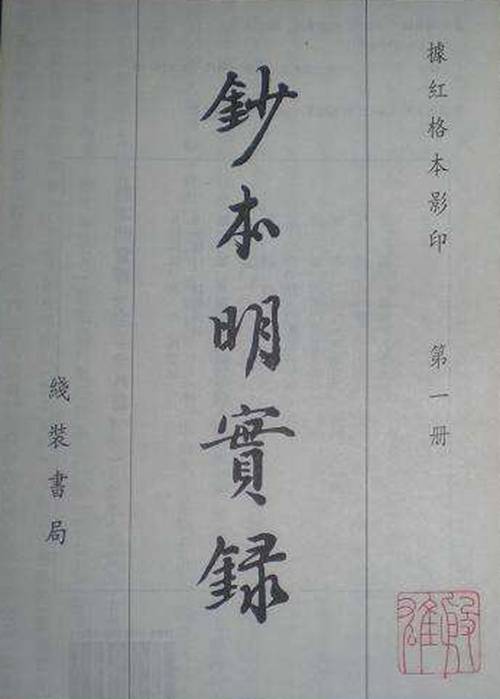 據红格本影印 第一册
鈔本明實録
綫裝書局